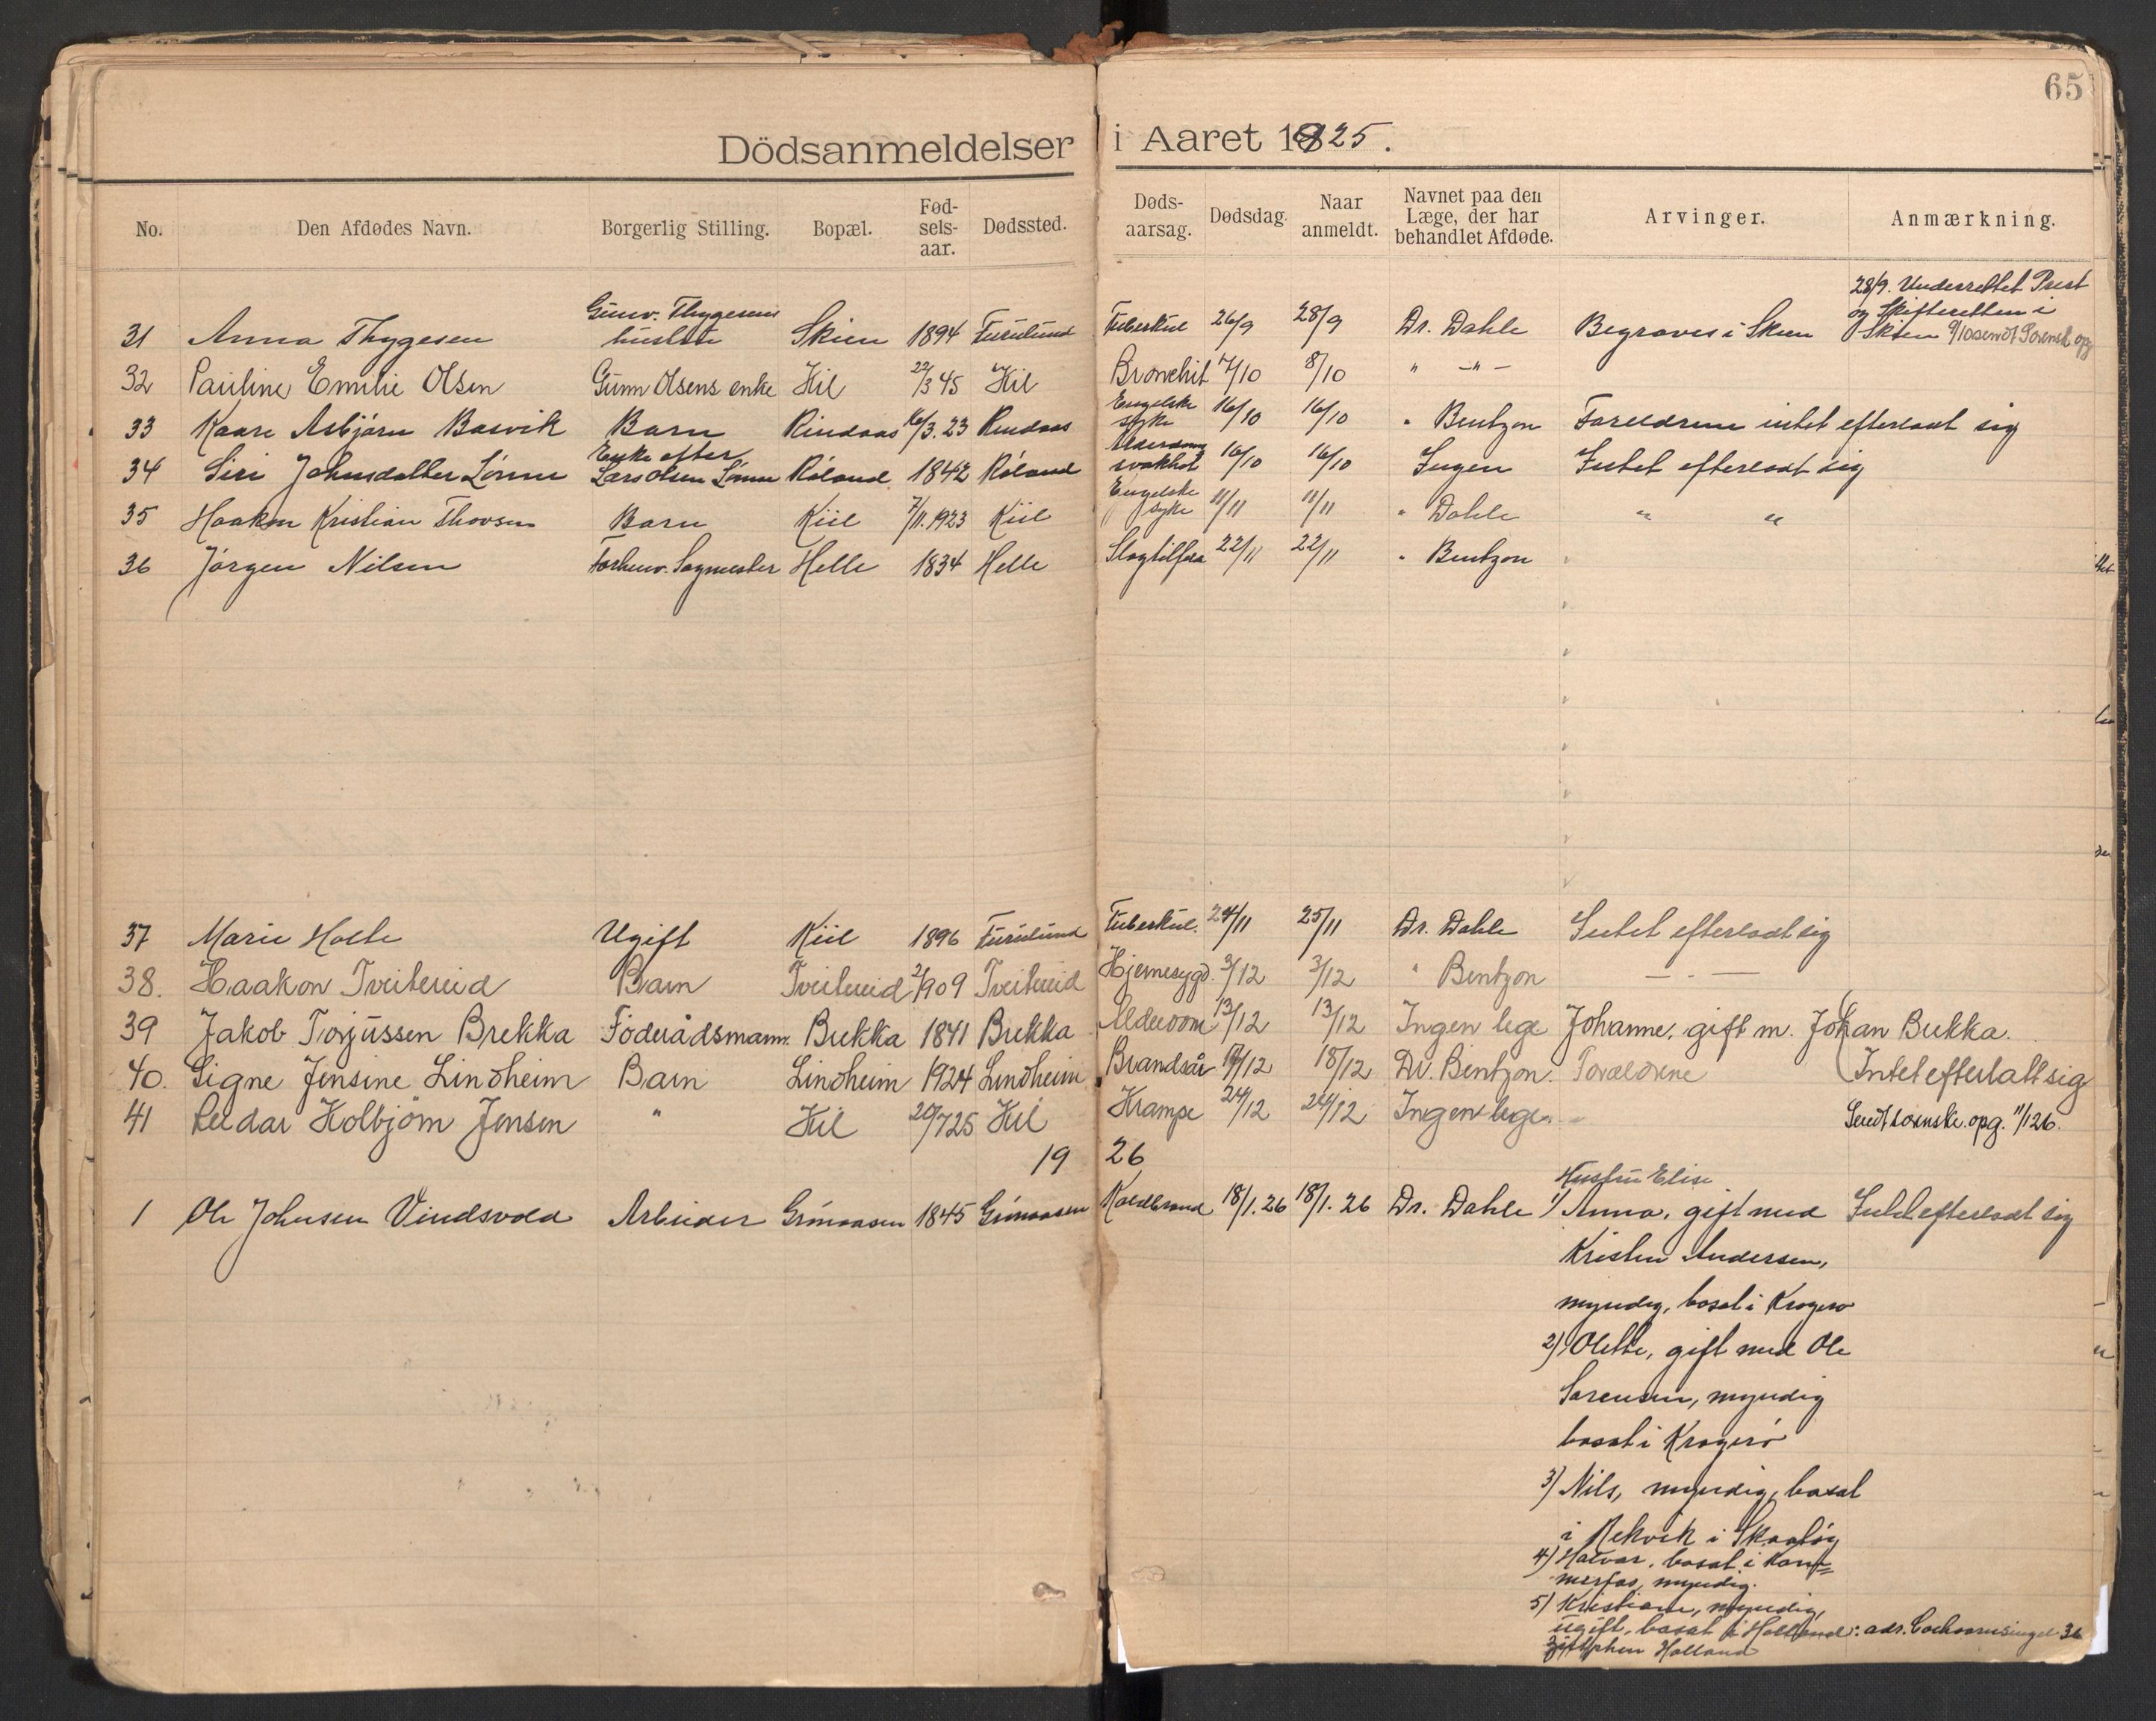 65
Dödsanmeldelser i Aaret 1925.
No. Den Afdødes Navn. Borgerlig Stilling. Bopæl. Fød-sels-aar. Dødssted. Døds-aarsag. Dødsdag. Naar anmeldt. Navnet paa den Læge, der har behandlet Afdøde. Arvinger. Anmærkning.
28/9. Underrettet Prest
og Skifteretten i
31 Anna Thygesen Gunv. Thygesens hustru Skien 1894 Furulund Tuberkul 26/9 28/9 Dr. Dahle Begraves i Skien Skien 9/10 sendt Sorensk. opg
32 Pauline Emilie Olsen Gunn Olsens enke Kil 22/3 45 Kil Bronchit 7/10 8/10 " -"-
33 Kaare Asbjørn Basvik Barn Rindaas 16/3.23 Rindaas Engelske syke 16/10 16/10 " Bentzon Foreldrene intet efterladt sig
34 Siri Johnsdatter Lønne Enke efter Lars Olsen Lønne Røland 1842 Røland Alderdoms svakhet 16/10 16/10 Ingen Intet efterladt sig
35 Haakon Kristian Thovsen Barn Kiil 7/11.1923 Kiil Engelske syke 11/11 11/11 " Dahle " "
36 Jørgen Nilsen Forhenv. Sagmester Helle 1834 Helle Slagtilfæ 22/11 22/11 " Bentzon
37 Marie Holte Ugift Kiil 1896 Furulund Tuberkul. 24/11 25/11 Dr. Dahle Intet efterladt sig
38. Haakon Tveitereid Barn Tveitereid 2/1909 Tveitereid Hjernesygd. 3/12 3/12 " Bentzon — " —
39 Jakob Torjussen Brekka Föderådsmann. Brekka 1841 Brekka Alderdom 13/12 13/12 Ingen lege Johanne, gift m. Johan Brekka.
40. Signe Jensine Lindheim Barn Lindheim 1924 Lindheim Brandsår 17/12 18/12 Dr. Bentzon. Foreldrene Intet efterlatt sig
41 Reidar Kolbjörn Jensen " Kil 20/725 Kil Krampe 24/12 24/12 Ingen lege. Sendt sorensk. opg. 11/1 26.
19 26
Hustru Elise
1 Ole Johnsen Vindsvold Arbeider Grönaasen 1845 Grönaasen Koldbrand 18/1.26 18/1.26 Dr. Dahle 1) Anna, gift med Intet efterladt sig
Kristen Andersen,
myndig, bosat i Kragerø
2) Olette, gift med Ole
Sørensen, myndig
bosat i Kragerø
3) Nils, myndig, bosat
i Rekvik i Skaatøy
4) Halvor, bosat i Kam=
merfos, myndig.
5) Kristiane, myndig,
ugift, bosat i Holland: adr. 36
Zutphen Holland